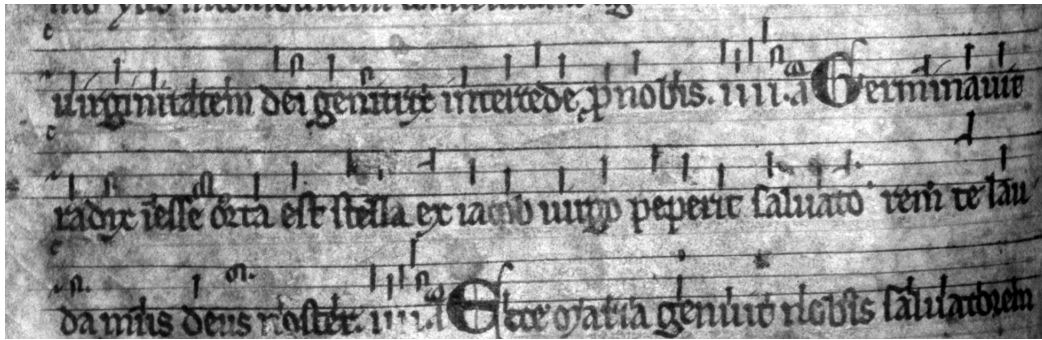 uirginitatem dei genitrix intercede p nobis. iiii. a Germinauit
radix iesse orta est stella ex iacob uirgo peperit saluato rem te lau
damus deus noster. iiii. a Ecce maria genuit nobis saluatorem